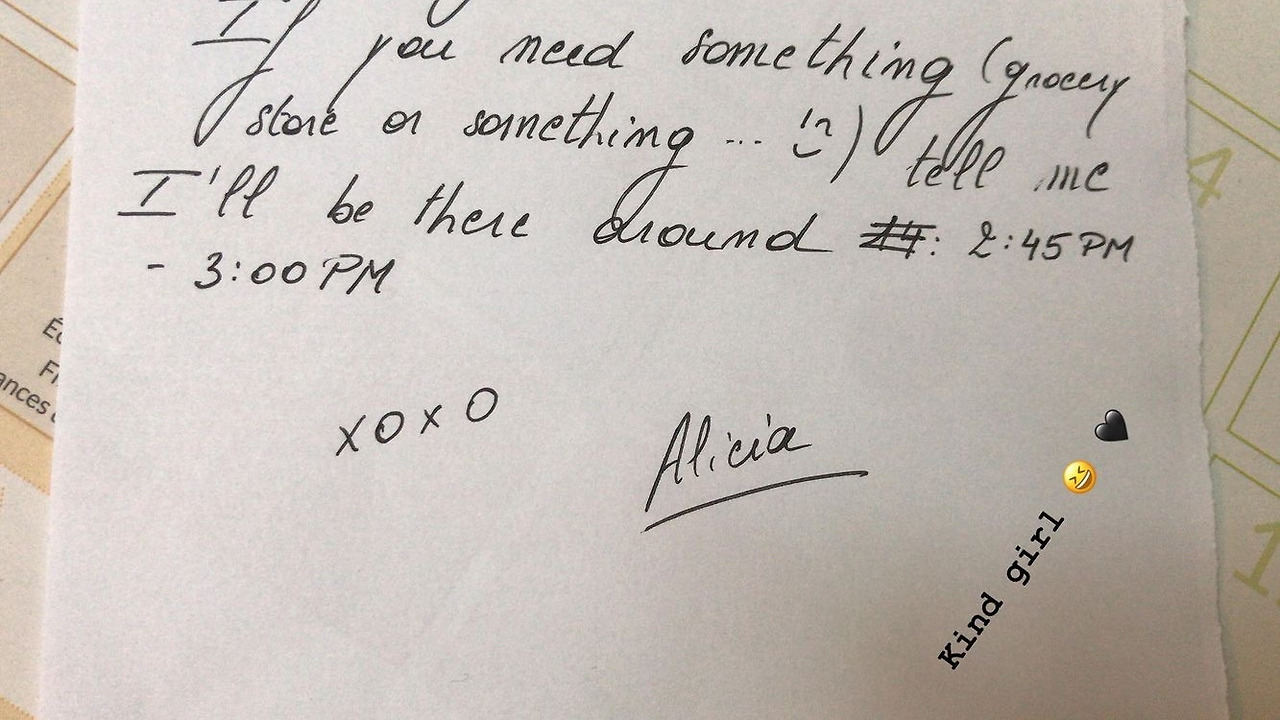 If you need something (grocery
store or something ... !?) tell me
I'll be there around 2:45 PM
- 3:00 PM
xoxo
Alicia
Kind girl 🤣 🖤
4
1